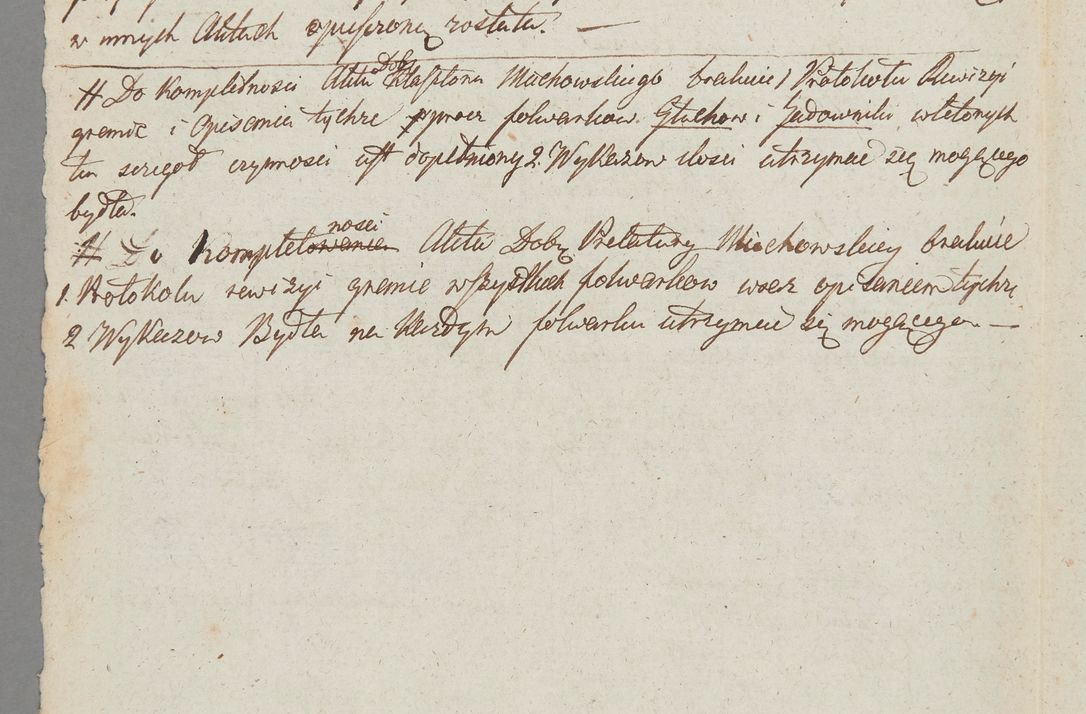 w innych Aktach opuszczoną została. —
# Do Kompletności Aktu Dóbr Klasztoru Miechowskiego brakuie 1 Protokołu Rewizyi
granic i opisania tychże oprocz folwarkow Głuchow i Jadowniki w których
ta czynności iest dopełniony 2. Wykazow ilości utrzymać się mogącego
bydła.
# Do kompletowania nosci Aktu Dobr Prelatury Miechowskiey brakuie
1. Protokołu rewizyi granic wszystkich folwarkow wraz opisaniem tychże
2 Wykazow Bydła na każdym folwarku utrzymać się mogącego. —